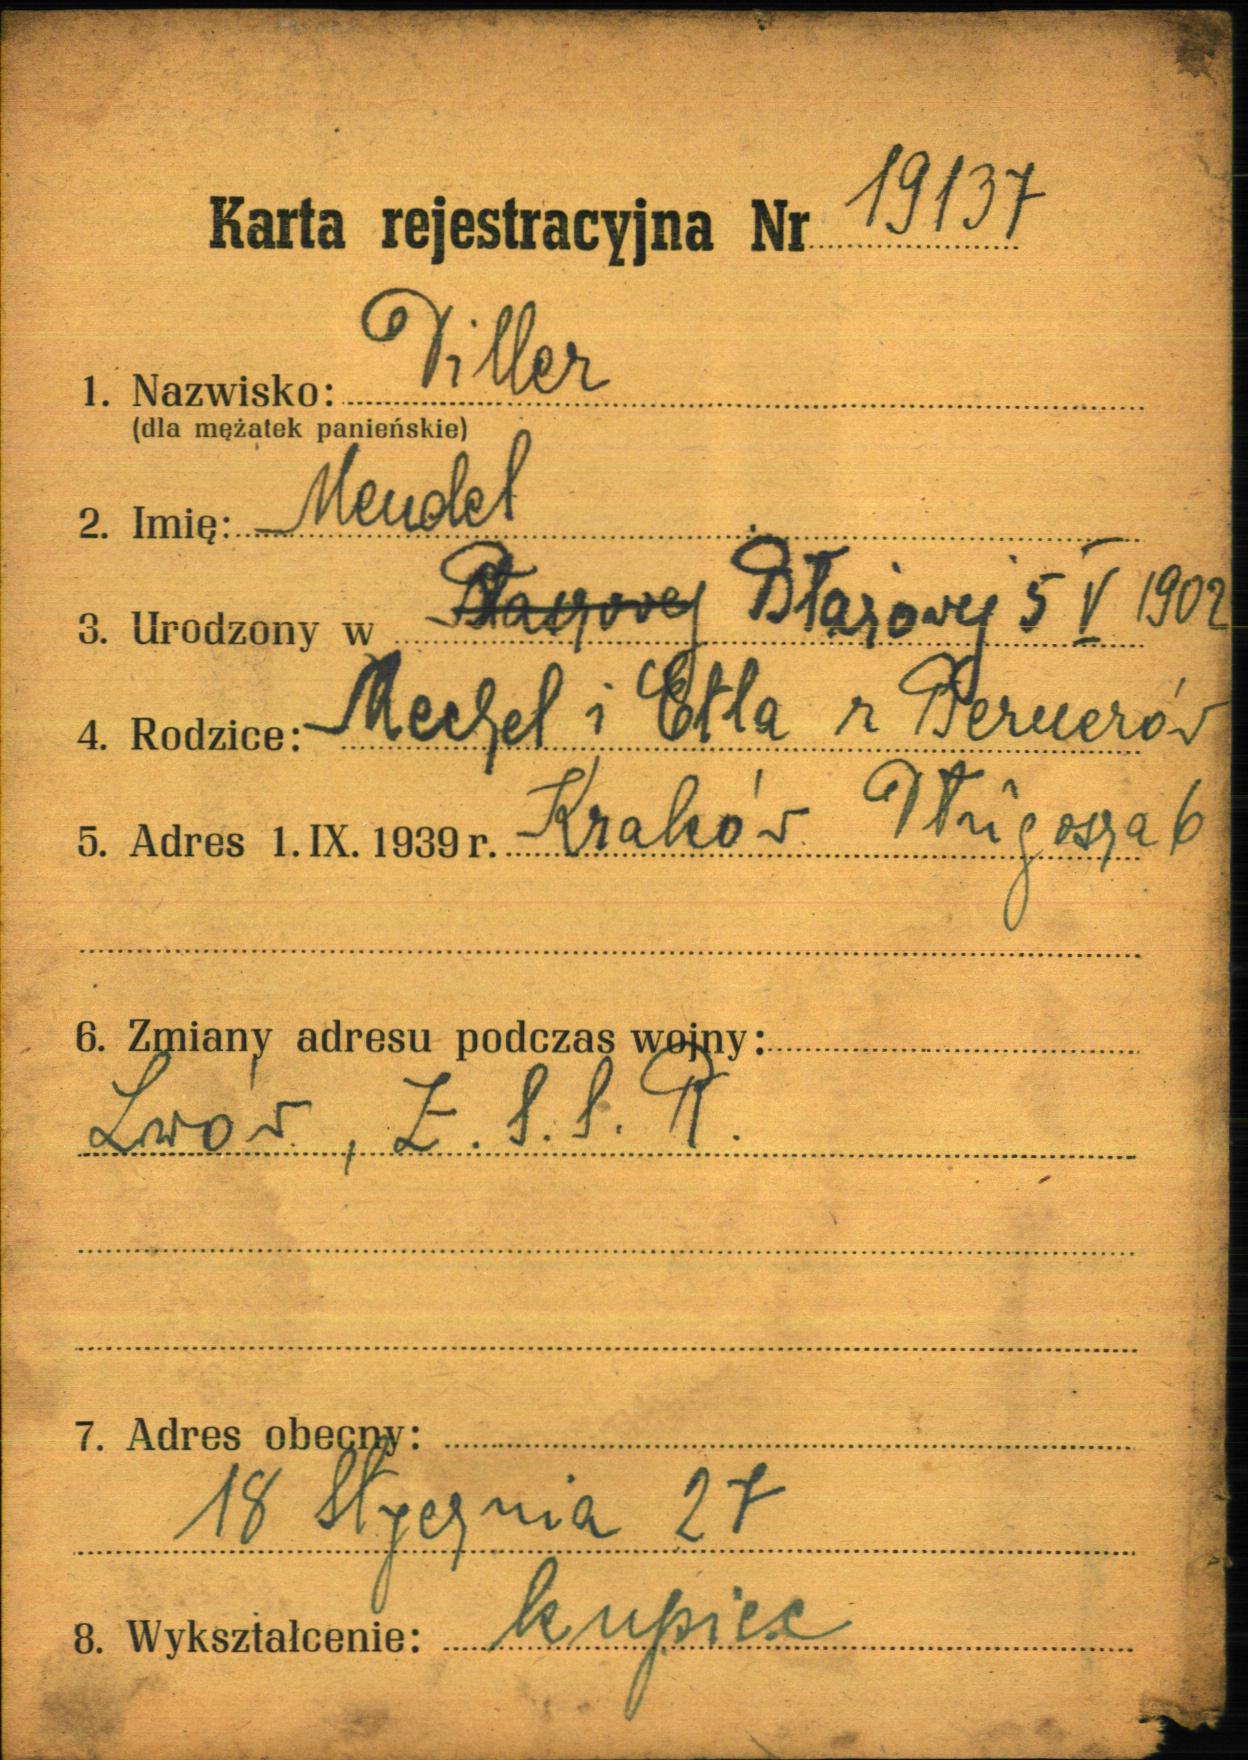 Karta rejestracyjna Nr 19137
1. Nazwisko: Diller
(dla mężatek panieńskie)
2. Imię: Mendel
3. Urodzony w Błażowej 5 V 1902
4. Rodzice: Mechel i Etla z Bernerów
5. Adres 1. IX. 1939 r. Kraków Długosza 6
6. Zmiany adresu podczas wojny:
Lwów, Z.S.S.R.
7. Adres obecny:
18 Stycznia 27
8. Wykształcenie: kupiec